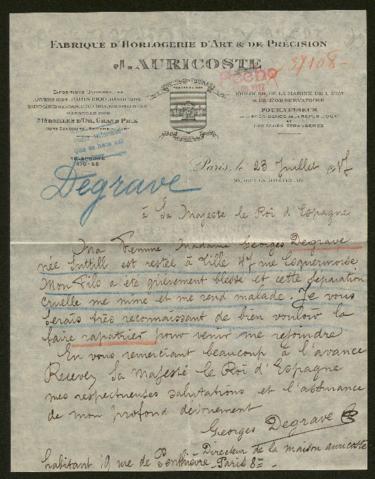 FABRIQUE D'HORLOGERIE D'ART & DE PRÉCISION
J. AURICOSTE
57108
MÉDAILLES D'OR, GRAND PRIX
HORLOGER DE LA MARINE DE L'ÉTAT
& DE L'OBSERVATOIRE
FOURNISSEUR
TÉLÉPHONE
Paris, le 23 Juillet 1917
Degrave
à Sa Majesté le Roi d'Espagne
Ma Femme Madame Georges Degrave
née Inttill est resteé à Lille 47 rue Esquermoise
Mon Fils a été grièvement blessé et cette séparation
cruelle me mine et me rend malade. Je vous
serais très reconnaissant de bien vouloir la
faire rapatrier pour venir me rejoindre
En vous remerciant beaucoup à l'avance
Recevez Sa Majesté le Roi d'Espagne
mes respectueuses salutations et l'assurance
de mon profond dévouement
Georges Degrave
Directeur de la maison auricoste
habitant 19 rue de Penthièvre Paris 8e